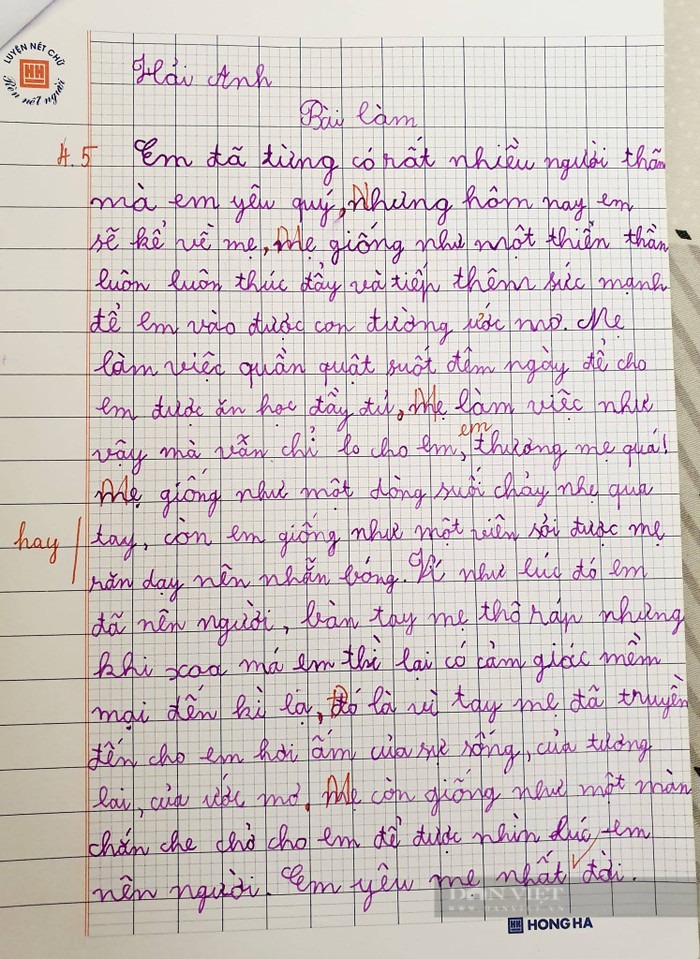 LUYỆN NÉT CHỮ
HH
Rèn nết người
Hải Anh
Bài làm
4.5 Em đã từng có rất nhiều người thân
mà em yêu quý, Nhưng hôm nay em
sẽ kể về mẹ, Mẹ giống như một thiên thần
luôn luôn thúc đẩy và tiếp thêm sức mạnh
để em vào được con đường ước mơ. Mẹ
làm việc quần quật suốt đêm ngày để cho
em được ăn học đầy đủ, Mẹ làm việc như
vậy mà vẫn chỉ lo cho em, em thương mẹ quá!
Mẹ giống như một dòng suối chảy nhẹ qua
hay tay, còn em giống như một viên sỏi được mẹ
răn dạy nên nhẵn bóng. Ví như lúc đó em
đã nên người, bàn tay mẹ thô ráp nhưng
khi xoa má em thì lại có cảm giác mềm
mại đến kì lạ, Đó là vì tay mẹ đã truyền
đến cho em hơi ấm của sự sống, của tương
lai, của ước mơ. Mẹ còn giống như một màn
chắn che chở cho em để được nhìn lúc em
nên người. Em yêu mẹ nhất đời.
DÂN VIỆT
HH HONG HA